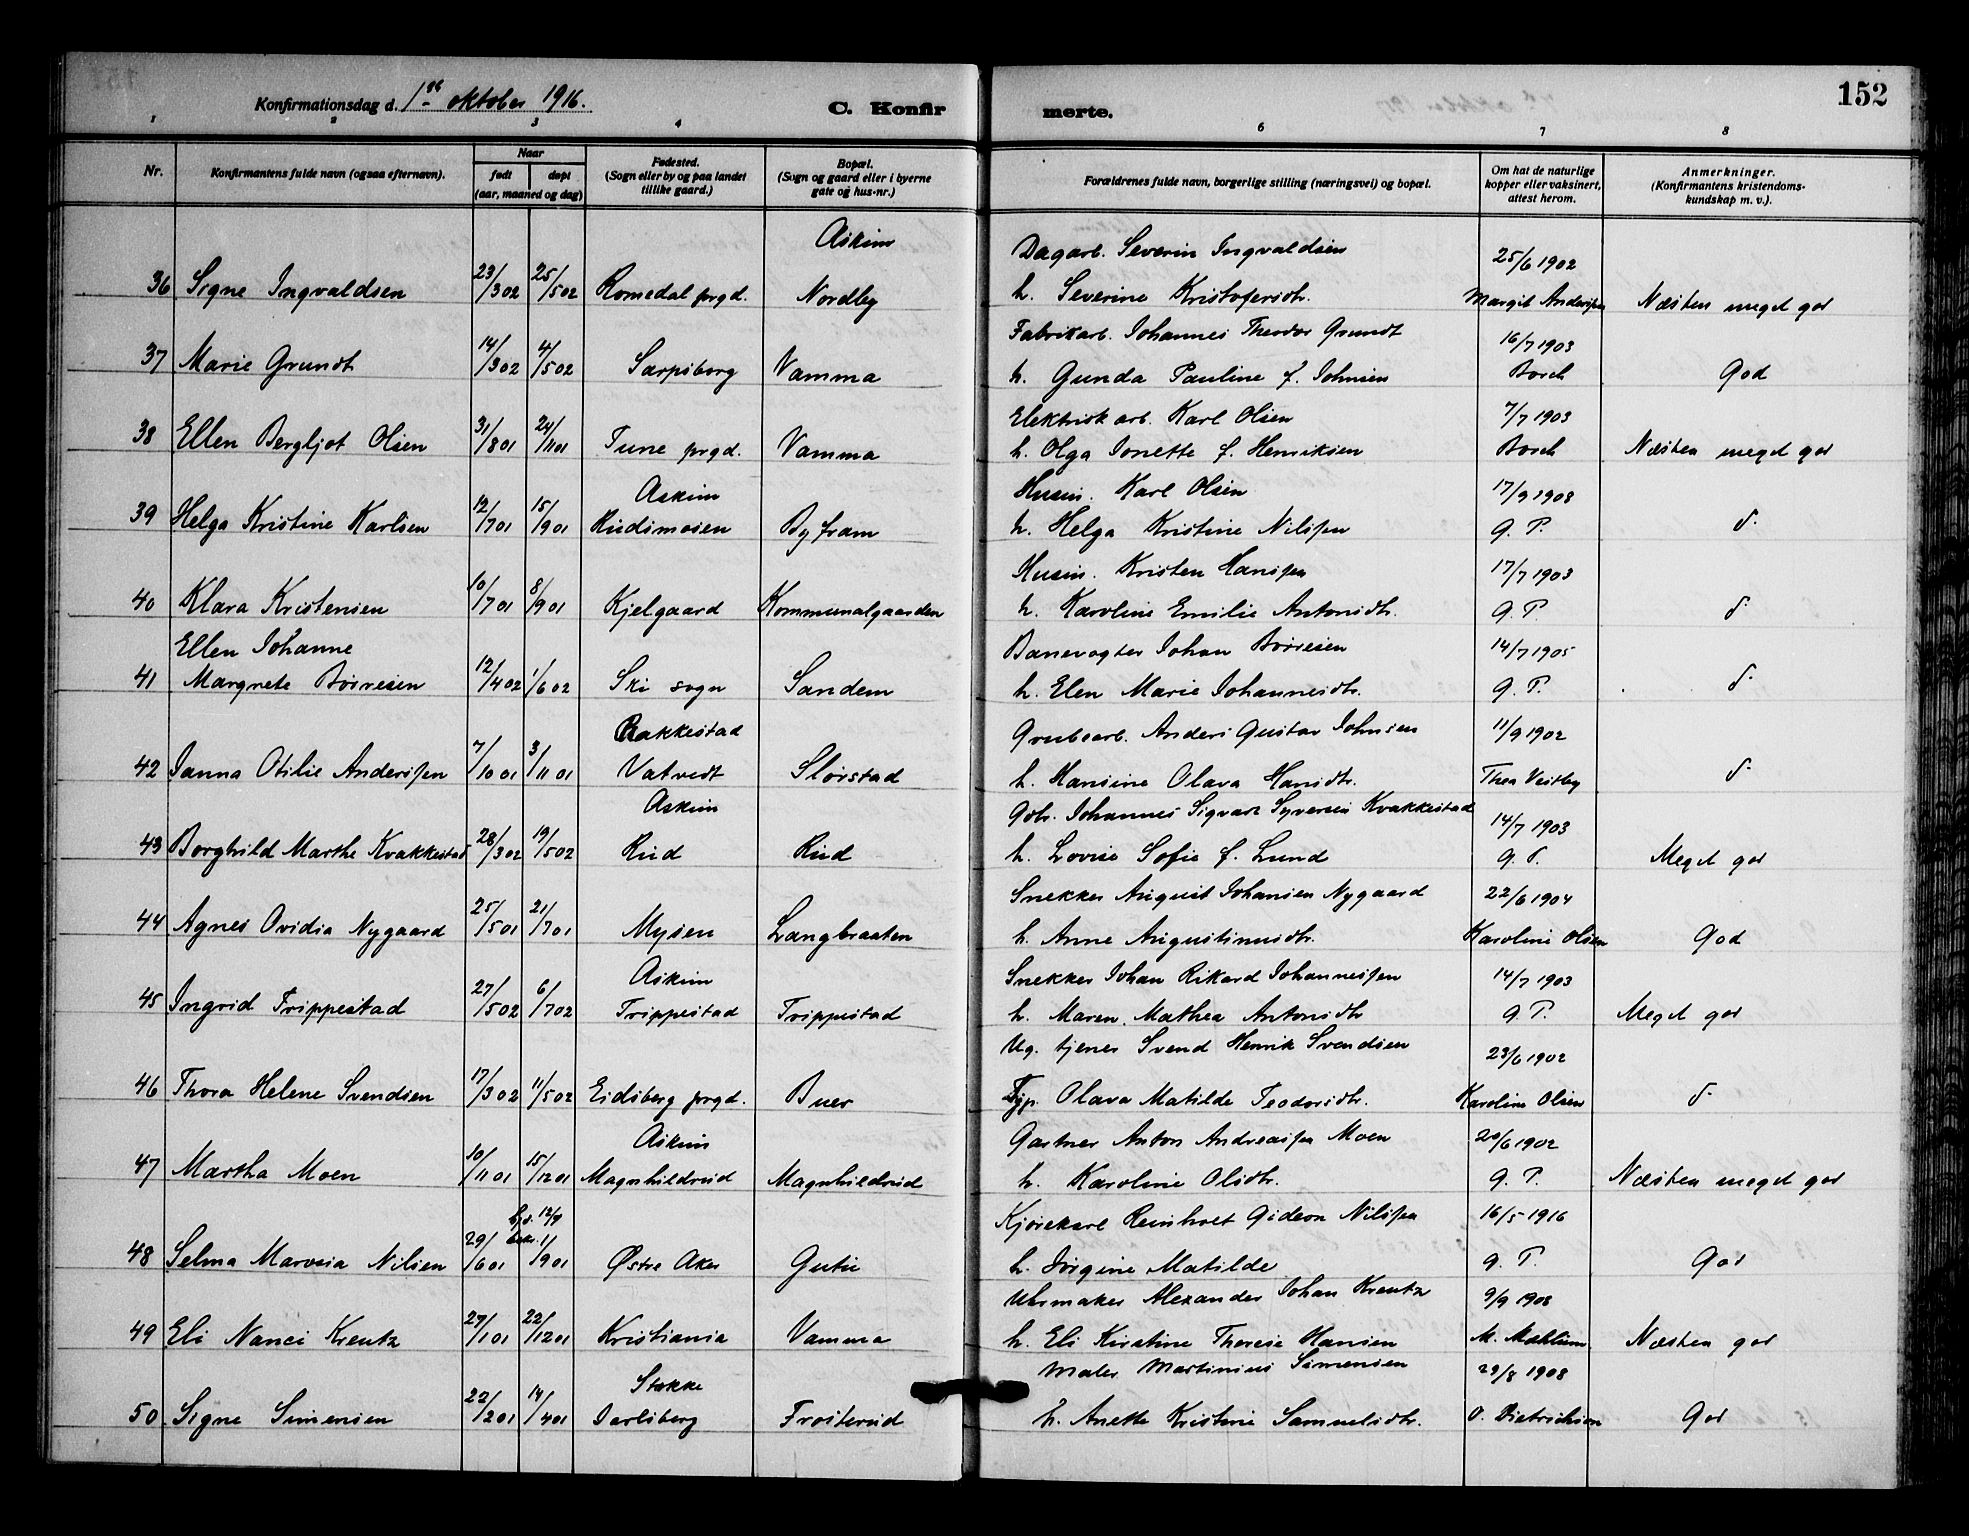 152
Konfirmationsdag d. 1ste oktober 1916.
C. Konfirmerte.
1 2 3 4 6 7 8
Nr.
Konfirmantens fulde navn (ogsaa efternavn).
Naar
født døpt
(aar, maaned og dag)
Fødested.
(Sogn eller by og paa landet
tillike gaard.)
Bopæl.
(Sogn og gaard eller i byerne
gate og hus-nr.)
Forældrenes fulde navn, borgerlige stilling (næringsvei) og bopæl.
Om hat de naturlige
kopper eller vaksinert,
attest herom.
Anmerkninger.
(Konfirmantens kristendoms-
kundskap m. v.).
Askim Dagarb. Severin Ingvaldsen 25/6 1902
36 Signe Ingvaldsen 23/3 02 25/5 02 Romedal prgd. Nordby h. Severine Kristofersdtr. Margit Anderssen Næsten meget god
Fabrikarb. Johannes Theodor Grundt 16/7 1903
37 Marie Grundt 14/3 02 4/5 02 Sarpsborg Vamma h. Gunda Pauline f. Johnsen Borch God
Elektrisk arb. Karl Olsen 7/7 1903
38 Ellen Bergljot Olsen 31/8 01 24/11 01 Tune prgd. Vamma h. Olga Jonette f. Henriksen Borch Næsten meget god
Askim Husm. Karl Olsen 17/9 1908
39 Helga Kristine Karlsen 12/7 01 15/9 01 Rudsmosen By fram h. Helga Kristine Nilssen g. P. d-
Husm. Kristen Hanssen 17/7 1903
40 Klara Kristensen 10/7 01 8/9 01 Kjelgaard Kommunalgaarden h. Karoline Emilie Antonsdtr. g. P. d-
Ellen Johanne Banevogter Johan Børresen 14/7 1905
41 Margrete Børresen 12/4 02 1/6 02 Ski sogn Sandem h. Elen Marie Johannesdtr. g. P. d-
Rakkestad Grubearb. Anders Gustav Johnsen 11/9 1902
42 Janna Otilie Anderssen 7/10 01 3/11 01 Vatvedt Slørstad h. Hansine Olava Hansdtr. Thea Vestby d-
Askim Gbr. Johannes Sigvart Syversen Kvakkestad 14/7 1903
43 Borghild Marthe Kvakkestad 28/3 02 19/5 02 Rud Rud h. Lovise Sofie f. Lund g. P. Meget god
Snekker August Johansen Nygaard 22/6 1904
44 Agnes Ovidia Nygaard 25/5 01 21/7 01 Mysen Langbraaten h. Anne Augustinusdtr. Karoline Olsen God
Askim Snekker Johan Rikard Johannessen 14/7 1903
45 Ingrid Trippestad 27/5 02 6/7 02 Trippestad Trippestad h. Maren Mathea Antonsdtr g. P. Meget god
Ug. tjener Svend Henrik Svendsen 23/6 1902
46 Thora Helene Svendsen 17/3 02 11/5 02 Eidsberg prgd. Buer Tjp. Olava Matilde Teodorsdtr. Karoline Olsen d-
Askim Gartner Anton Andreassen Moen 20/6 1902
47 Martha Moen 10/11 01 15/12 01 Magnhildrud Magnhildrud h. Karoline Olsdtr. g. P. Næsten meget god
hjd. 12/7 Kjørekarl Reinholt Gideon Nilssen 16/5 1916
48 Selma Marvsia Nilsen 29/6 01 bekr. 1/9 01 Østre Aker Gutu h. Jørgine Matilde g. P. God
Uhrmaker Alexander Johan Kreutz 9/9 1908
49 Eli Nanci Kreutz 27/1 01 22/12 01 Kristiania Vamma h. Eli Kirstine Therese Hansen M. Mæhlum Næsten god
Stokke Maler Martinius Simensen 29/8 1908
50 Signe Simensen 22/2 01 14/4 01 Jarlsberg Frosterud h. Anette Kristine Samuelsdtr. O. Dietrichson God